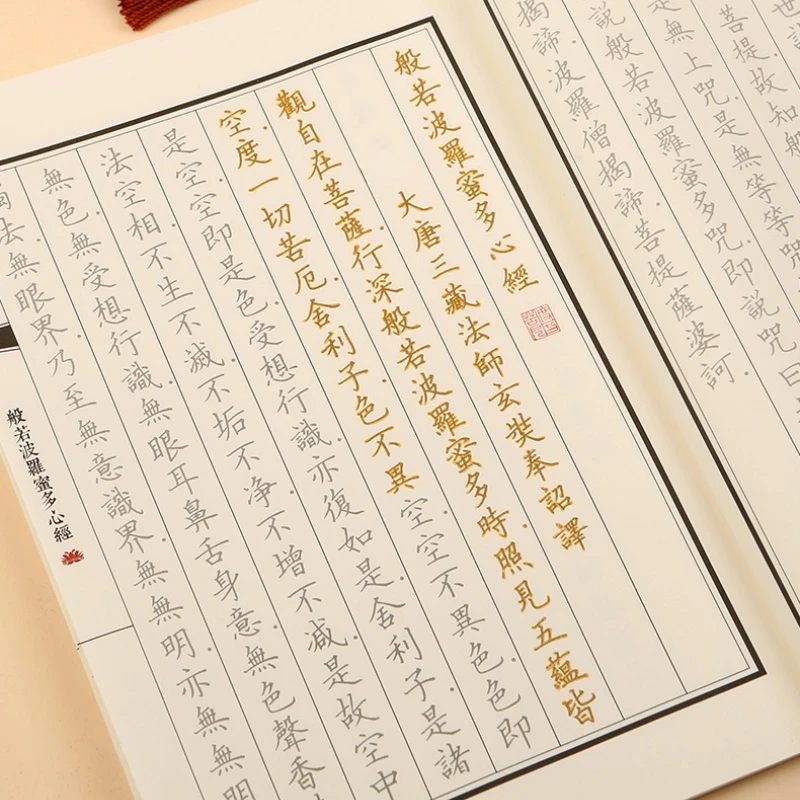 世
菩提故知般
是無上咒是無等等咒
說般若波羅蜜多咒即說咒曰
揭諦波羅僧揭諦菩提薩婆訶
般若波羅蜜多心經
大唐三藏法師玄奘奉詔譯
觀自在菩薩行深般若波羅蜜多時照見五蘊皆
空度一切苦厄舍利子色不異空空不異色色即
是空空即是色受想行識亦復如是舍利子是諸
法空相不生不滅不垢不净不增不减是故空中
無色無受想行識無眼耳鼻舌身意無色聲香
法無眼界乃至無意識界無無明亦無無明
般若波羅蜜多心經